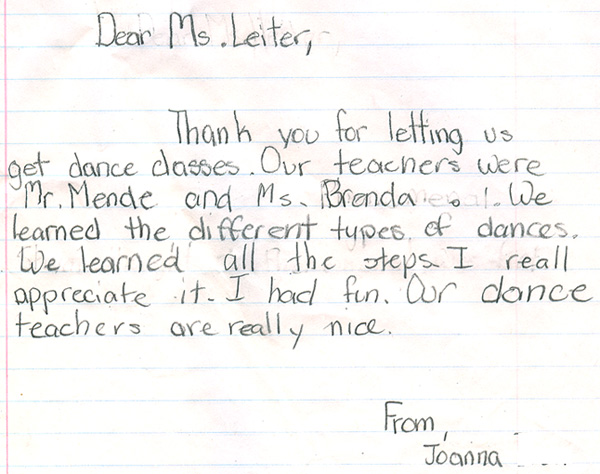 Dear Ms. Leiter,
Thank you for letting us
get dance classes. Our teachers were
Mr. Mende and Ms. Brenda. We
learned the different types of dances.
We learned all the steps. I reall
appreciate it. I had fun. Our dance
teachers are really nice.
From,
Joanna